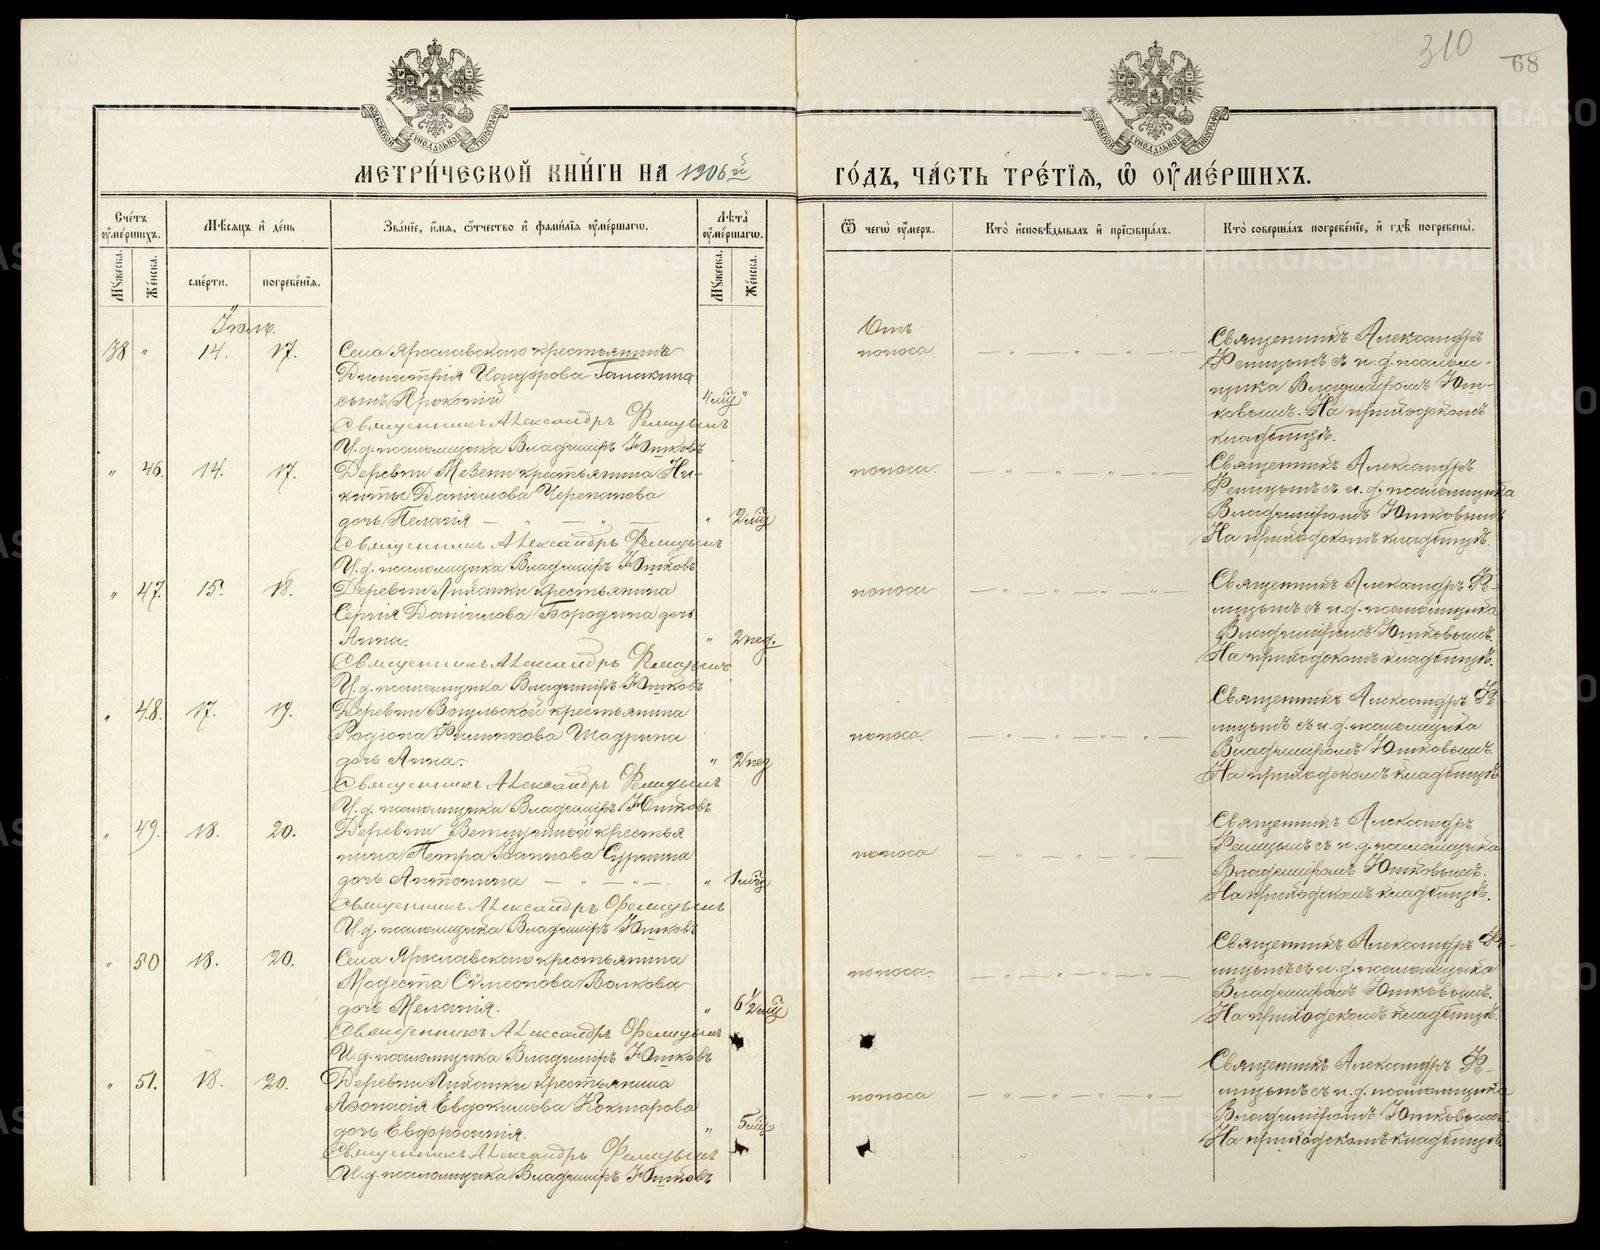 310
68
МОСКОВСКОЙ СѴНОДАЛЬНОЙ ТИПОГРАФІИ
МОСКОВСКОЙ СѴНОДАЛЬНОЙ ТИПОГРАФІИ
МЕТРИ́ЧЕСКОЙ КНИ́ГИ НА 1906й
ГО́ДЪ, ЧА́СТЬ ТРЕ́ТІЯ, Ѡ ОУМЕ́РШИХЪ.
Сче́тъ оумершихъ.
Мѣсяцъ и день
Зва́ніе, и́мя, ѻтчество и фами́лія оуме́ршагѡ.
Лѣта̀ оумершагѡ.
Ѿ чегѡ̀ оумеръ.
Кто̀ исповѣдывалъ и пріѡбщалъ.
Кто̀ соверша́лъ погребе́ніе, и гдѣ̀ погребены̀.
Мужеска.
Женска.
сме́рти.
погребе́нія.
Мужеска.
Женска.
Іюль.
Отъ
38 " 14. 17. Села Ярославскаго крестьянина
Димитрія Исидорова Галакина
сынъ Прокопій 4 мѣс "
Священникъ Александръ Фелицынъ
И. д. псаломщика Владиміръ Юшковъ
поноса
Священникъ Александръ
Фелицынъ съ и. д. псалом-
щика Владиміромъ Юш-
ковымъ. На приходскомъ
кладбищѣ.
" 46. 14. 17. Деревни Мезени крестьянина Ни-
киты Даніилова Черепанова
дочь Пелагія " 2 мѣс
Священникъ Александръ Фелицынъ
И. д. псаломщика Владиміръ Юшковъ
поноса.
Священникъ Александръ
Фелицынъ съ и. д. псаломщика
Владиміромъ Юшковымъ
На приходскомъ кладбищѣ.
" 47. 15. 18. Деревни крестьянина
Сергія Даніилова Бородина дочь
Анна. " 2 нед.
Священникъ Александръ Фелицынъ
И. д. псаломщика Владиміръ Юшковъ
поноса
Священникъ Александръ Фе-
лицынъ съ и. д. псаломщика
Владиміромъ Юшковымъ.
На приходскомъ кладбищѣ.
" 48. 17. 19. Деревни Вогульской крестьянина
Родіона Филиппова Шадрина
дочь Анна. " 2 нед
Священникъ Александръ Фелицынъ
И. д. псаломщика Владиміръ Юшковъ
поноса.
Священникъ Александръ Фе-
лицынъ съ и. д. псаломщика
Владиміромъ Юшковымъ.
На приходскомъ кладбищѣ
" 49. 18. 20. Деревни крестья
нина Петра Іоаннова Сурнина
дочь Антонина " 1 мѣс
Священникъ Александръ Фелицынъ
И. д. псаломщика Владиміръ Юшковъ
поноса
Священникъ Александръ
Фелицынъ съ и. д. псаломщика
Владиміромъ Юшковымъ.
На приходскомъ кладбищѣ.
" 50 18. 20. Села Ярославскаго крестьянина
Модеста Сѵмеонова Волкова
дочь Мелатія. " 6 1/2 мѣс
Священникъ Александръ Фелицынъ
И. д. псаломщика Владиміръ Юшковъ
поноса.
Священникъ Александръ Фе-
лицынъ съ и. д. псаломщика
Владиміромъ Юшковымъ.
На приходскомъ кладбищѣ.
" 51. 18. 20. Деревни крестьянина
Аѳонасія Евдокимова Кокшарова
дочь Евфросинія. " 5 мѣс
Священникъ Александръ Фелицынъ
И. д. псаломщика Владиміръ Юшковъ
поноса
Священникъ Александръ Фе-
лицынъ съ и. д. псаломщика
Владиміромъ Юшковымъ.
На приходскомъ кладбищѣ
METRIKI.GASO-URAL.RU